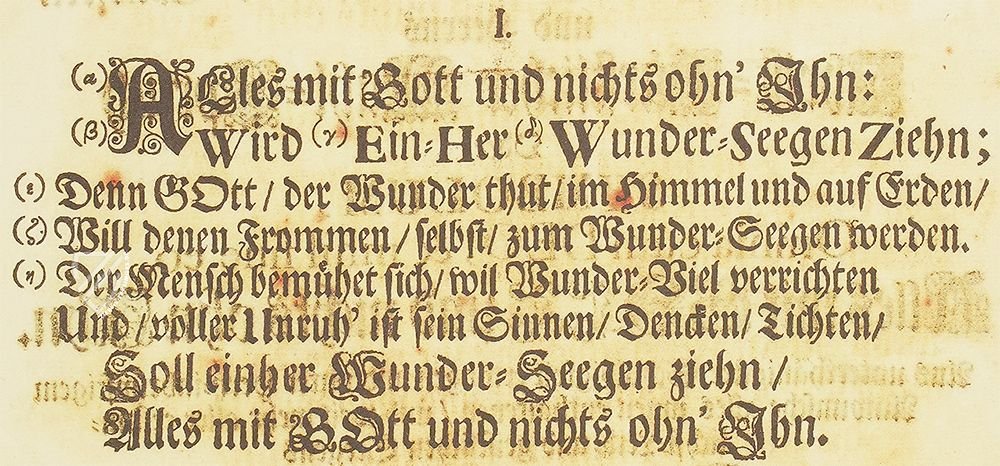 I.
(α) ALles mit Gott und nichts ohn' Jhn:
(β) Wird (γ) Ein-Her (δ) Wunder-Seegen Ziehn;
(ε) Denn GOtt / der Wunder thut / im Himmel und auf Erden /
(ζ) Will denen Frommen / selbst / zum Wunder-Seegen werden.
(η) Der Mensch bemühet sich / wil Wunder-Viel verrichten
Und / voller Unruh' ist sein Sinnen / Dencken / Tichten /
Soll einher Wunder-Seegen ziehn /
Alles mit GOtt und nichts ohn' Jhn.